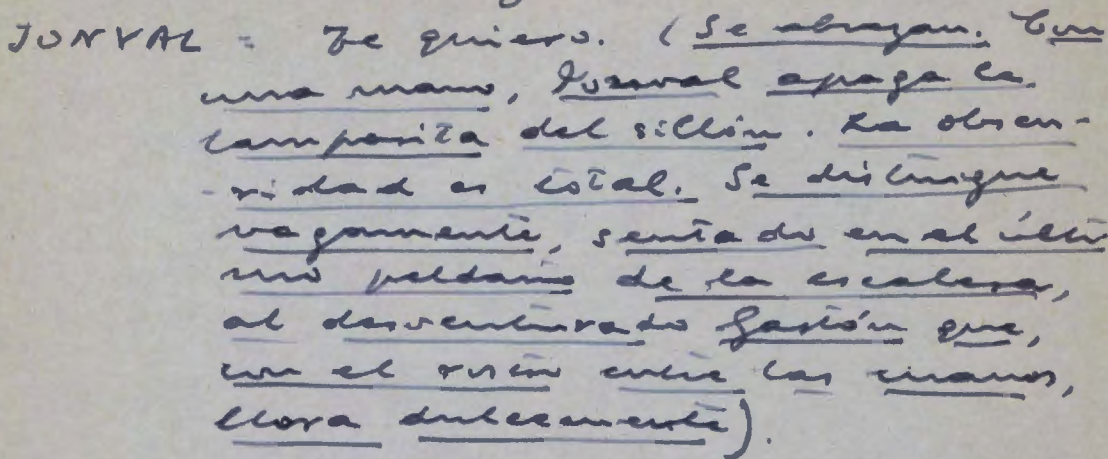 JONVAL = Te quiero. (Se abrazan. Con
una mano, Jonval apaga la
lamparita del sillón. La obscu-
-ridad es total. Se distingue
vagamente, sentado en el últi
mo peldaño de la escalera,
al desventurado Gastón que,
con el rostro entre las manos,
llora dulcemente).